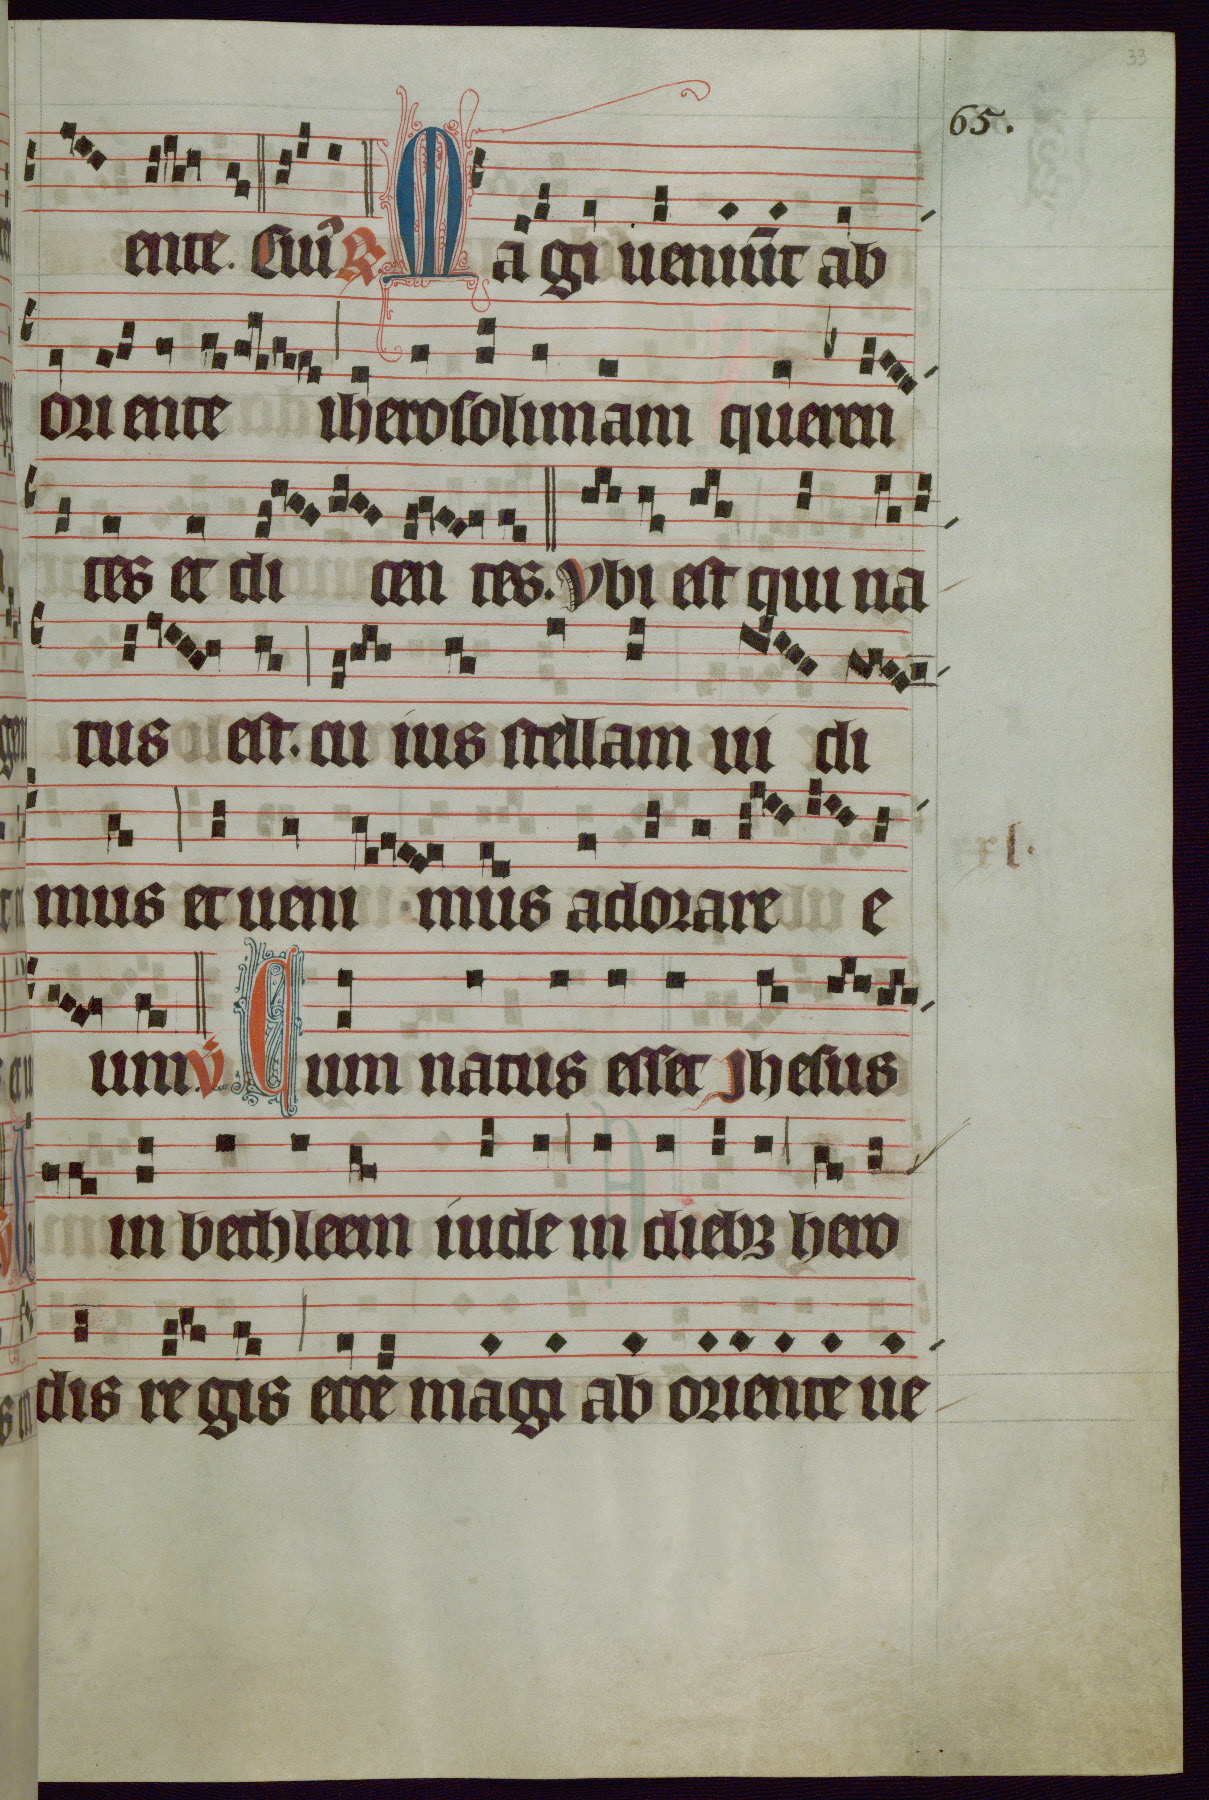 33
65.
ente. Cui℟. Magi ueniūt ab
oriente iherosolimam queren
tes et di cen tes. Vbi est qui na
tus est. cu ius stellam ui di
mus et ueni mus adorare e
xl.
um. ℣. Cum natus esset Jhesus
in bethleem iude in dieb₃ hero
dis re gis ecce magi ab oriente ue